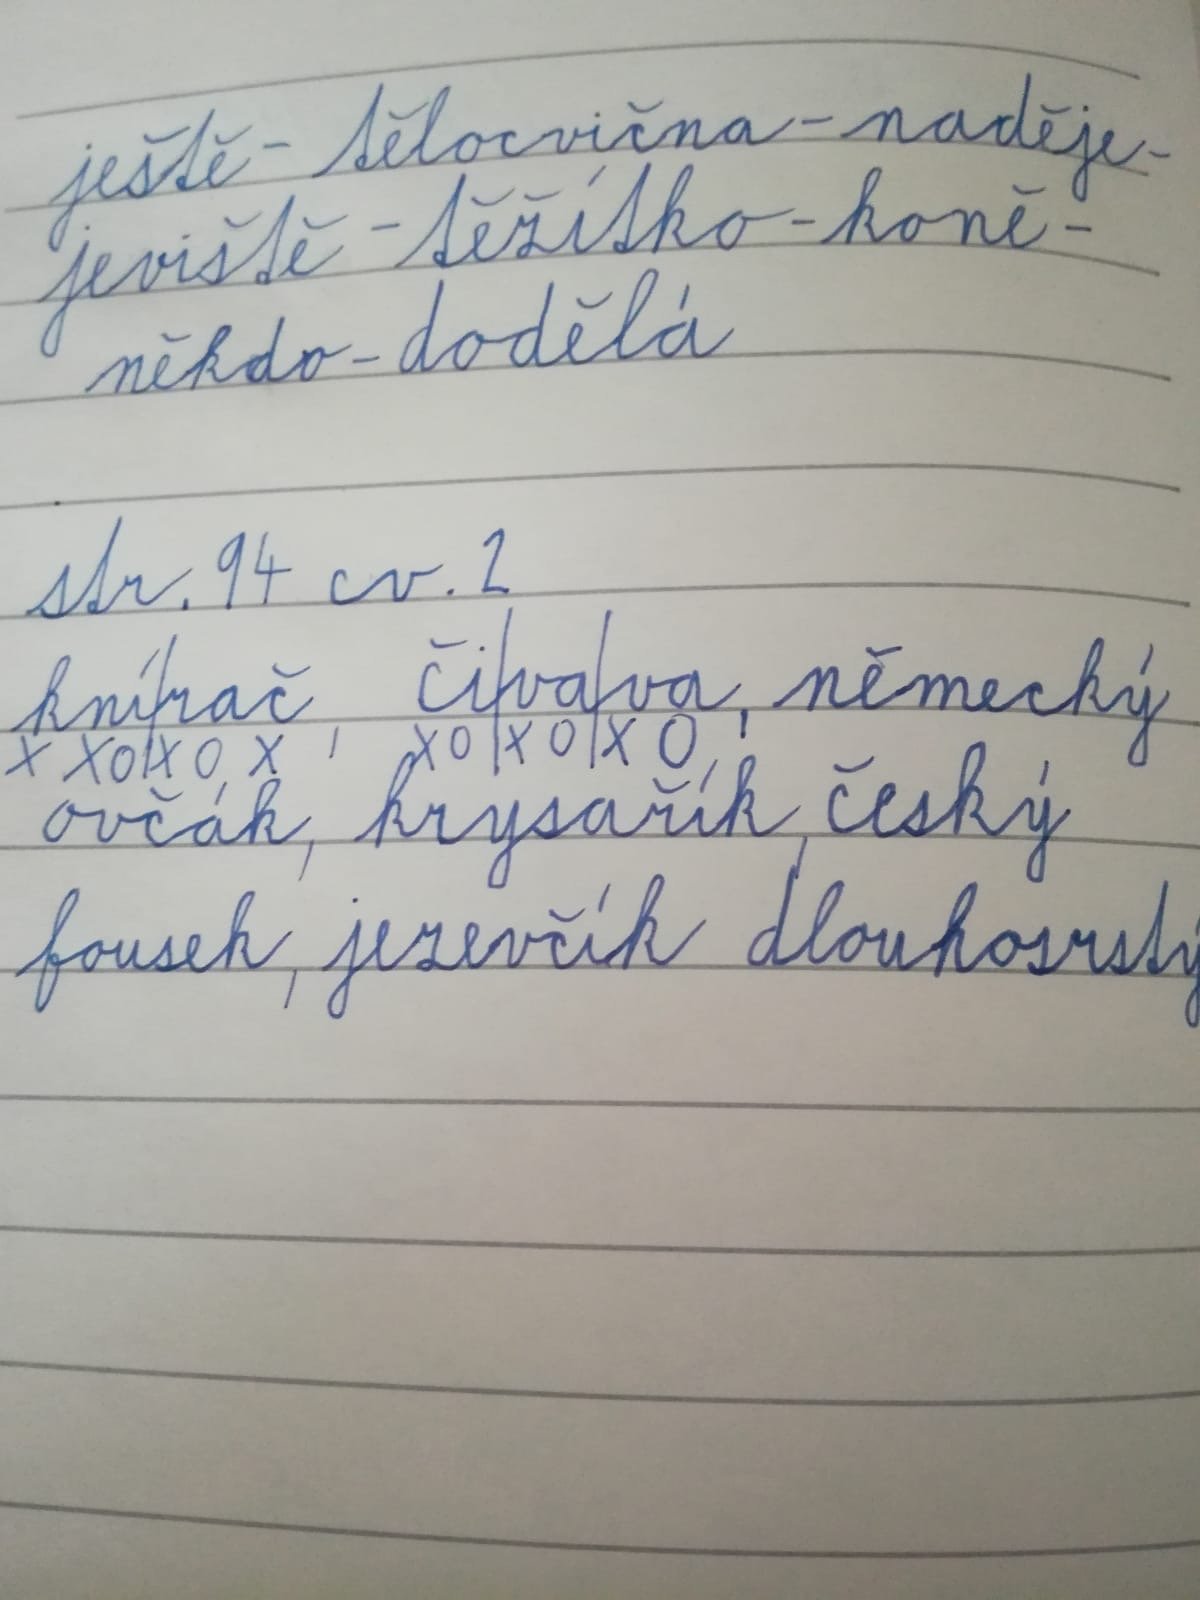 ještě - tělocvična - naděje -
jeviště - těžítko - koně -
někdo - dodělá
str. 94 cv. 2
kní/rač, či/va/va, německý
x xo/x o x, xo/x o/x o
ovčák, krysařík, český
fousek, jezevčík dlouhosrstý